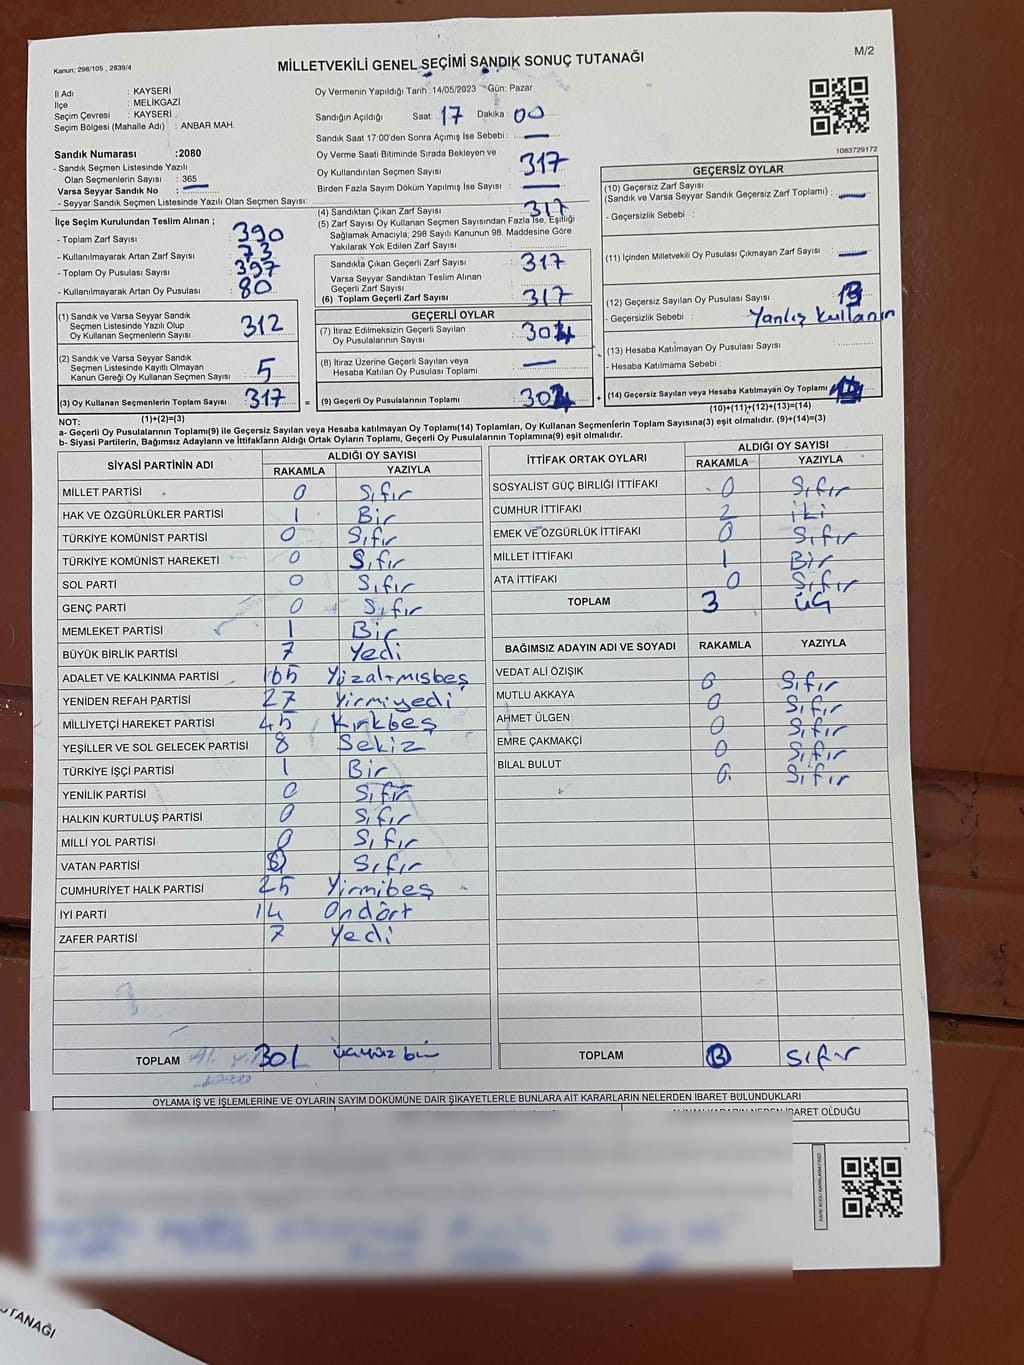 M/2
Kanun; 298/105 , 2839/4
MİLLETVEKİLİ GENEL SEÇİMİ SANDIK SONUÇ TUTANAĞI
İl Adı : KAYSERİ
İlçe : MELİKGAZİ
Seçim Çevresi : KAYSERİ
Seçim Bölgesi (Mahalle Adı) : ANBAR MAH.
Sandık Numarası :2080
- Sandık Seçmen Listesinde Yazılı
Olan Seçmenlerin Sayısı : 365
Varsa Seyyar Sandık No : —
- Seyyar Sandık Seçmen Listesinde Yazılı Olan Seçmen Sayısı:
İlçe Seçim Kurulundan Teslim Alınan ;
- Toplam Zarf Sayısı : 390
- Kullanılmayarak Artan Zarf Sayısı : 73
- Toplam Oy Pusulası Sayısı : 397
- Kullanılmayarak Artan Oy Pusulası : 80
(1) Sandık ve Varsa Seyyar Sandık
Seçmen Listesinde Yazılı Olup
Oy Kullanan Seçmenlerin Sayısı : 312
(2) Sandık ve Varsa Seyyar Sandık
Seçmen Listesinde Kayıtlı Olmayan
Kanun Gereği Oy Kullanan Seçmen Sayısı : 5
(3) Oy Kullanan Seçmenlerin Toplam Sayısı : 317
(1)+(2)=(3)
Oy Vermenin Yapıldığı Tarih :14/05/2023 Gün: Pazar
Sandığın Açıldığı Saat: 17 Dakika : 00
Sandık Saat 17:00'den Sonra Açımış İse Sebebi : —
Oy Verme Saati Bitiminde Sırada Bekleyen ve
Oy Kullandırılan Seçmen Sayısı : 317
Birden Fazla Sayım Döküm Yapılmış İse Sayısı : —
(4) Sandıktan Çıkan Zarf Sayısı : 317
(5) Zarf Sayısı Oy Kullanan Seçmen Sayısından Fazla İse, Eşitliği
Sağlamak Amacıyla; 298 Sayılı Kanunun 98. Maddesine Göre
Yakılarak Yok Edilen Zarf Sayısı :
Sandıkta Çıkan Geçerli Zarf Sayısı : 317
Varsa Seyyar Sandıktan Teslim Alınan
Geçerli Zarf Sayısı :
(6) Toplam Geçerli Zarf Sayısı : 317
GEÇERLİ OYLAR
(7) İtiraz Edilmeksizin Geçerli Sayılan
Oy Pusulalarının Sayısı : 304
(8) İtiraz Üzerine Geçerli Sayılan veya
Hesaba Katılan Oy Pusulası Toplamı : —
= (9) Geçerli Oy Pusulalarının Toplamı : 304
1083729172
GEÇERSİZ OYLAR
(10) Geçersiz Zarf Sayısı
(Sandık ve Varsa Seyyar Sandık Geçersiz Zarf Toplamı) : —
- Geçersizlik Sebebi :
(11) İçinden Milletvekili Oy Pusulası Çıkmayan Zarf Sayısı : —
(12) Geçersiz Sayılan Oy Pusulası Sayısı : 13
- Geçersizlik Sebebi : Yanlış kullanın
(13) Hesaba Katılmayan Oy Pusulası Sayısı :
- Hesaba Katılmama Sebebi :
+ (14) Geçersiz Sayılan veya Hesaba Katılmayan Oy Toplamı :
(10)+(11)+(12)+(13)=(14)
NOT:
a- Geçerli Oy Pusulalarının Toplamı(9) ile Geçersiz Sayılan veya Hesaba Katılmayan Oy Toplamı(14) Toplamları, Oy Kullanan Seçmenlerin Toplam Sayısına(3) eşit olmalıdır. (9)+(14)=(3)
b- Siyasi Partilerin, Bağımsız Adayların ve İttifakların Aldığı Ortak Oyların Toplamı, Geçerli Oy Pusulalarının Toplamına(9) eşit olmalıdır.
SİYASİ PARTİNİN ADI ALDIĞI OY SAYISI
RAKAMLA YAZIYLA
MİLLET PARTİSİ 0 Sıfır
HAK VE ÖZGÜRLÜKLER PARTİSİ 1 Bir
TÜRKİYE KOMÜNİST PARTİSİ 0 Sıfır
TÜRKİYE KOMÜNİST HAREKETİ 0 Sıfır
SOL PARTİ 0 Sıfır
GENÇ PARTİ 0 Sıfır
MEMLEKET PARTİSİ 1 Bir
BÜYÜK BİRLİK PARTİSİ 7 Yedi
ADALET VE KALKINMA PARTİSİ 165 Yüzaltmışbeş
YENİDEN REFAH PARTİSİ 27 Yirmiyedi
MİLLİYETÇİ HAREKET PARTİSİ 45 Kırkbeş
YEŞİLLER VE SOL GELECEK PARTİSİ 8 Sekiz
TÜRKİYE İŞÇİ PARTİSİ 1 Bir
YENİLİK PARTİSİ 0 Sıfır
HALKIN KURTULUŞ PARTİSİ 0 Sıfır
MİLLİ YOL PARTİSİ 0 Sıfır
VATAN PARTİSİ Sıfır
CUMHURİYET HALK PARTİSİ 25 Yirmibeş
İYİ PARTİ 14 Ondört
ZAFER PARTİSİ 7 Yedi
TOPLAM 301 üçyüz bir
İTTİFAK ORTAK OYLARI ALDIĞI OY SAYISI
RAKAMLA YAZIYLA
SOSYALİST GÜÇ BİRLİĞİ İTTİFAKI 0 Sıfır
CUMHUR İTTİFAKI 2 iki
EMEK VE ÖZGÜRLÜK İTTİFAKI 0 Sıfır
MİLLET İTTİFAKI 1 Bir
ATA İTTİFAKI 0 Sıfır
TOPLAM 3 üç
BAĞIMSIZ ADAYIN ADI VE SOYADI RAKAMLA YAZIYLA
VEDAT ALİ ÖZIŞIK 0 Sıfır
MUTLU AKKAYA 0 Sıfır
AHMET ÜLGEN 0 Sıfır
EMRE ÇAKMAKÇİ 0 Sıfır
BİLAL BULUT 0 Sıfır
TOPLAM Sıfır
OYLAMA İŞ VE İŞLEMLERİNE VE OYLARIN SAYIM DÖKÜMÜNE DAİR ŞİKAYETLERLE BUNLARA AİT KARARLARIN NELERDEN İBARET BULUNDUKLARI
İBARET OLDUĞU
TUTANAĞI